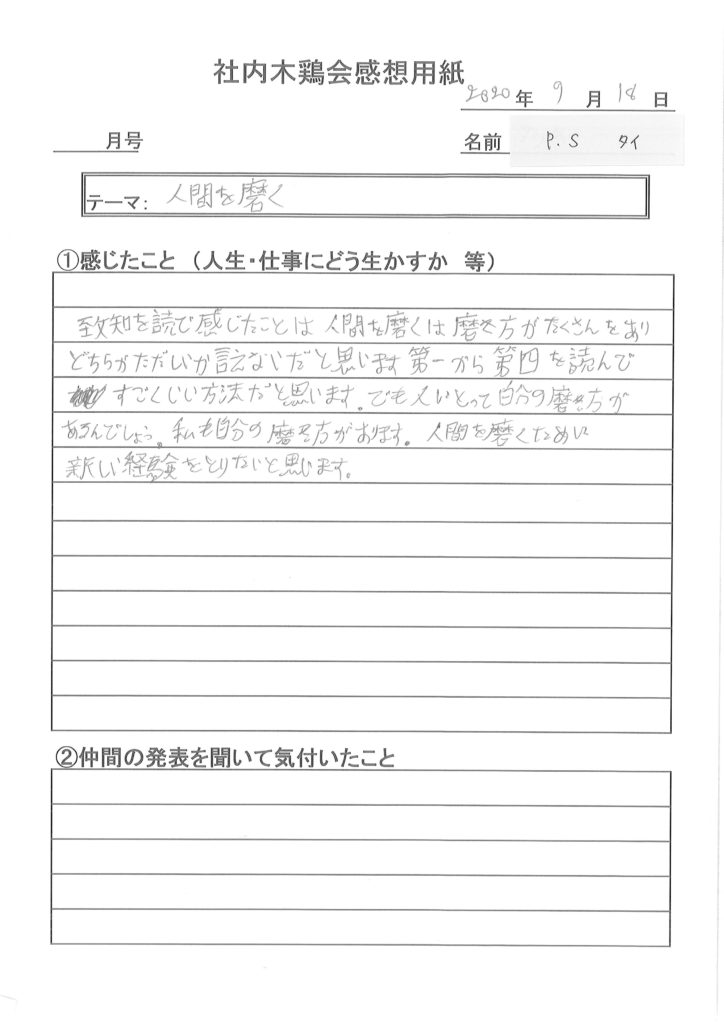 社内木鶏会感想用紙
2020年 9月 18日
月号
名前 P.S タイ
テーマ： 人間を磨く
①感じたこと （人生・仕事にどう生かすか 等）
致知を読で感じたことは 人間を磨くは 磨き方がたくさんをあり
どちらがただいか言えないだと思います 第一から第四を読んで
すごくじい方法だと思います。でも人いとって自分の磨き方が
あるんでしょう。私も自分の磨き方があります。人間を磨くために
新しい経験をとりたいと思います。
②仲間の発表を聞いて気付いたこと